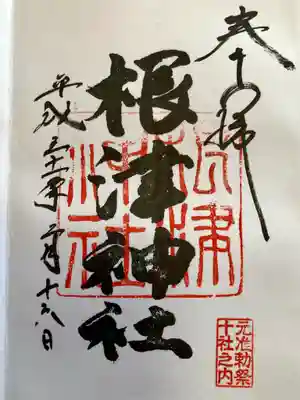 奉拝
根津神社
平成三十一年二月十六日
根津
神社
元准勅祭
十社之内